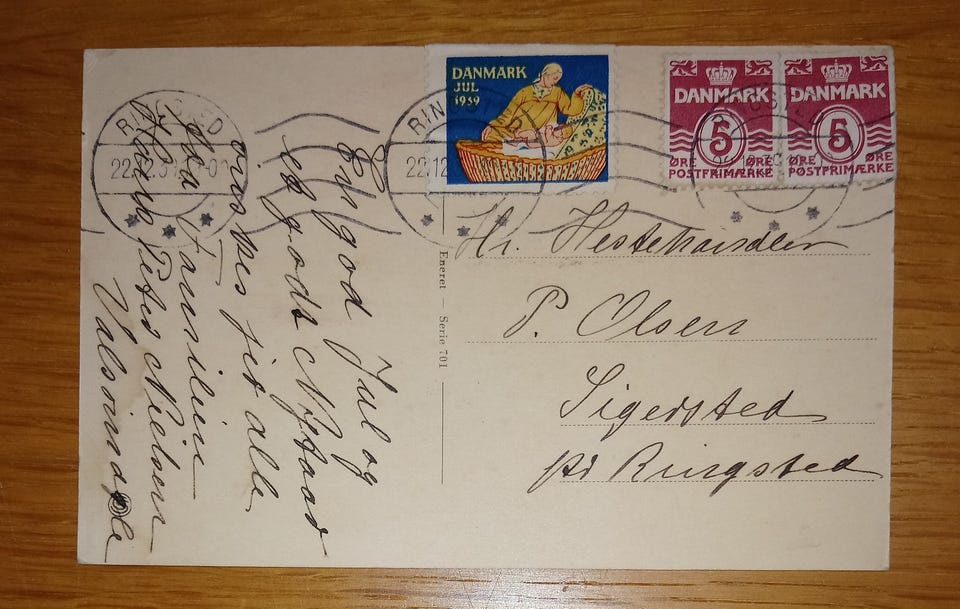 DANMARK
JUL
1939
DANMARK
5
ØRE ØRE
POSTFRIMÆRKE
DANMARK
5
ØRE ØRE
POSTFRIMÆRKE
RINGSTED
22.12
En god Jul og
et godt Nytaar
ønskes jer alle
fra Familien
Peter Nielsen
Valsømagle
Eneret – Serie 701
Hr. Hestehandler
P. Olsen
Sigersted
pr Ringsted